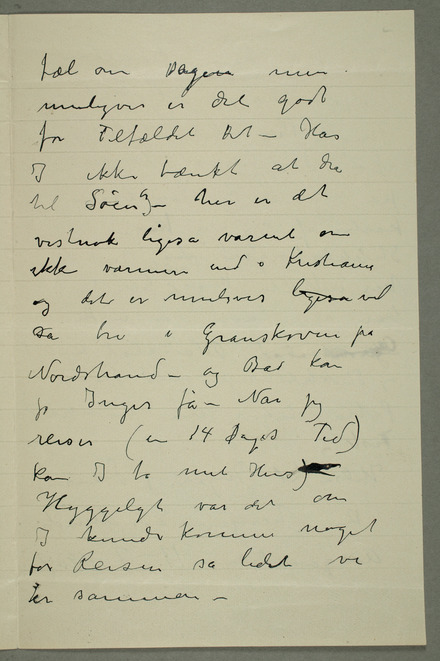 tæl om Dagen men
muligvis er det godt
for Tilfældet det – Har
I ikke tænkt at dra
til Søen – her er det
vistnok ligesa varmt om
ikke varmere end i Kristiania
og det er muligvis ligesa vel
sa bra i Granskoven pa
Nordstrand – og Bad kan
jo Inger få – Nar jeg
reiser (en 14 Dages Tid)
kan I ta mit Hus)
Hyggeligt var det om
I kunde komme noget
før Reisen sa lidt vi
er sammen –